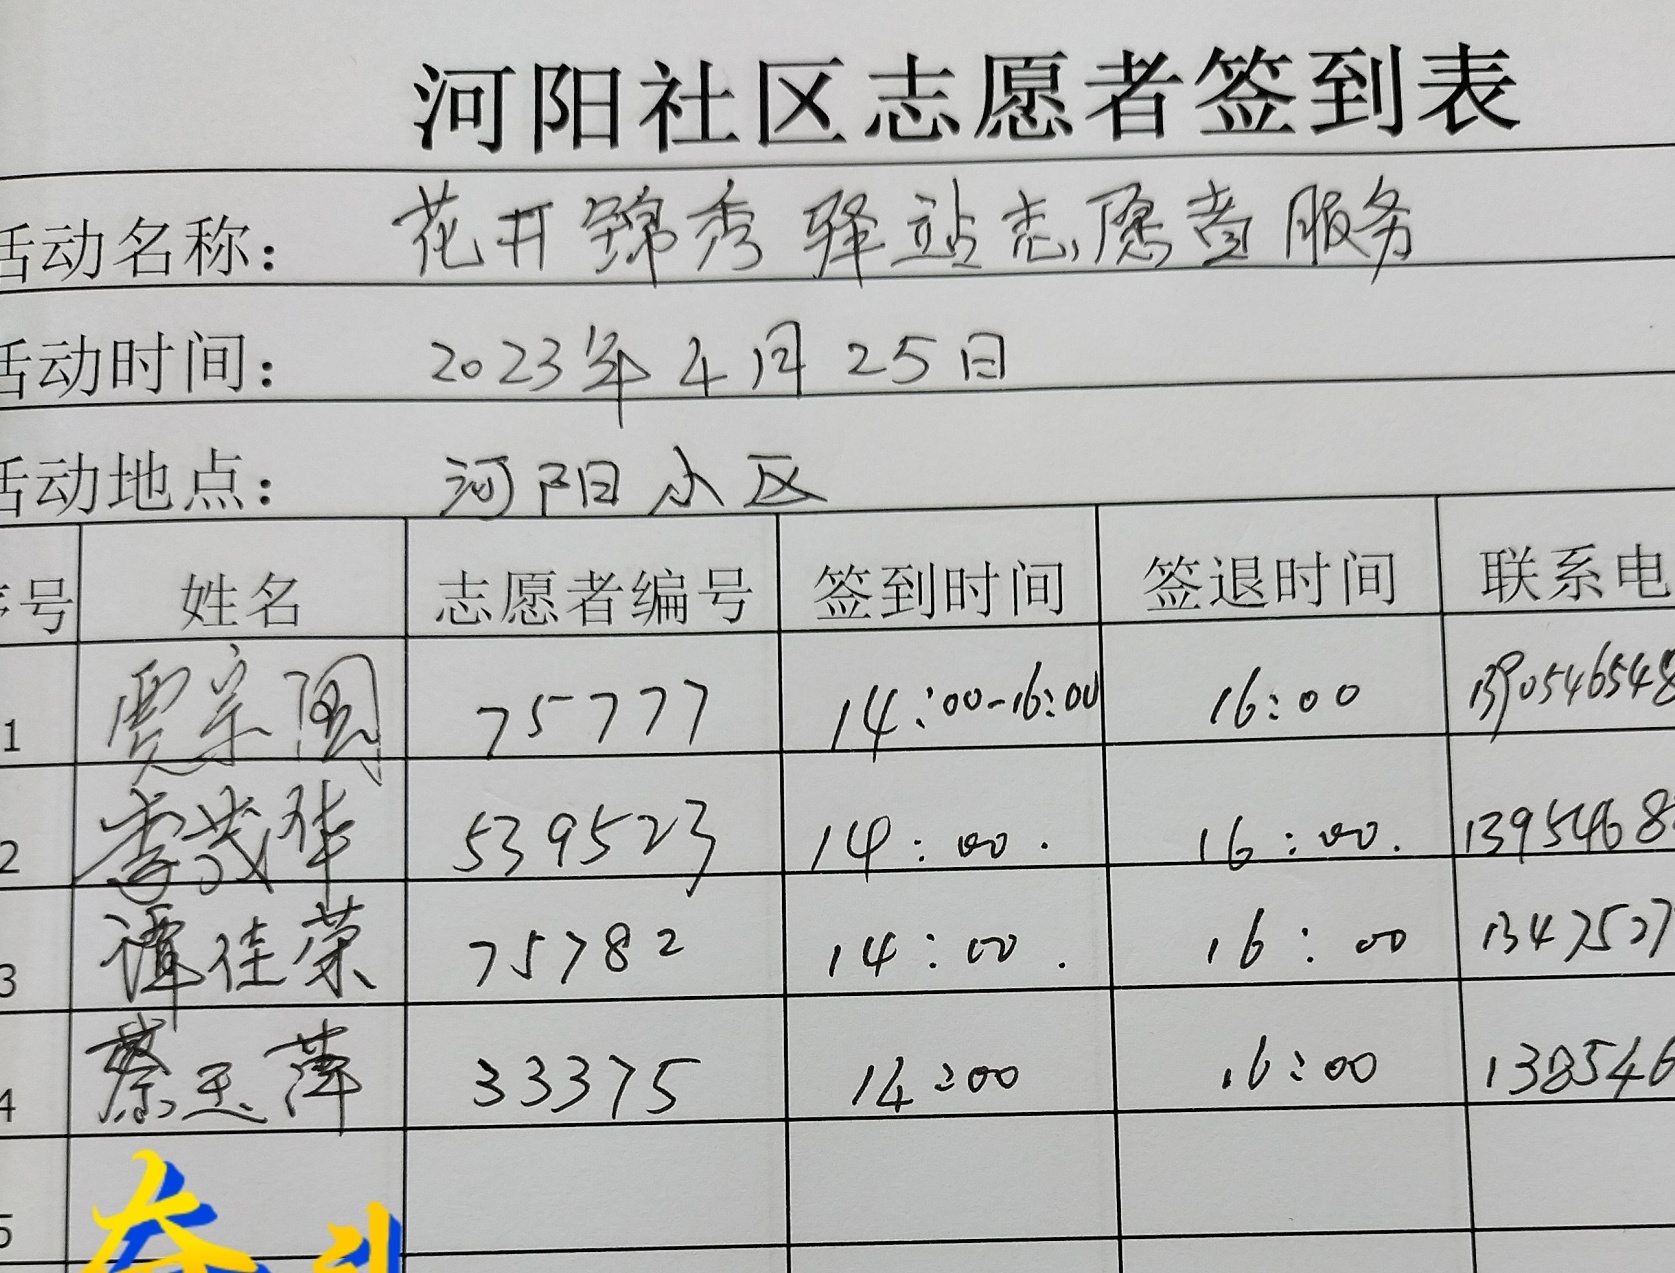 河阳社区志愿者签到表
活动名称: 花开锦秀驿站志愿者服务
活动时间: 2023年4月25日
活动地点: 河阳小区
序号 姓名 志愿者编号 签到时间 签退时间 联系电
1 贾宗国 75777 14:00-16:00 16:00 1390546548
2 李茂华 539523 14:00. 16:00. 1395468
3 谭佳荣 75782 14:00. 16:00 1347527
4 蔡玉萍 33375 14:00 16:00 138546
5
奋斗